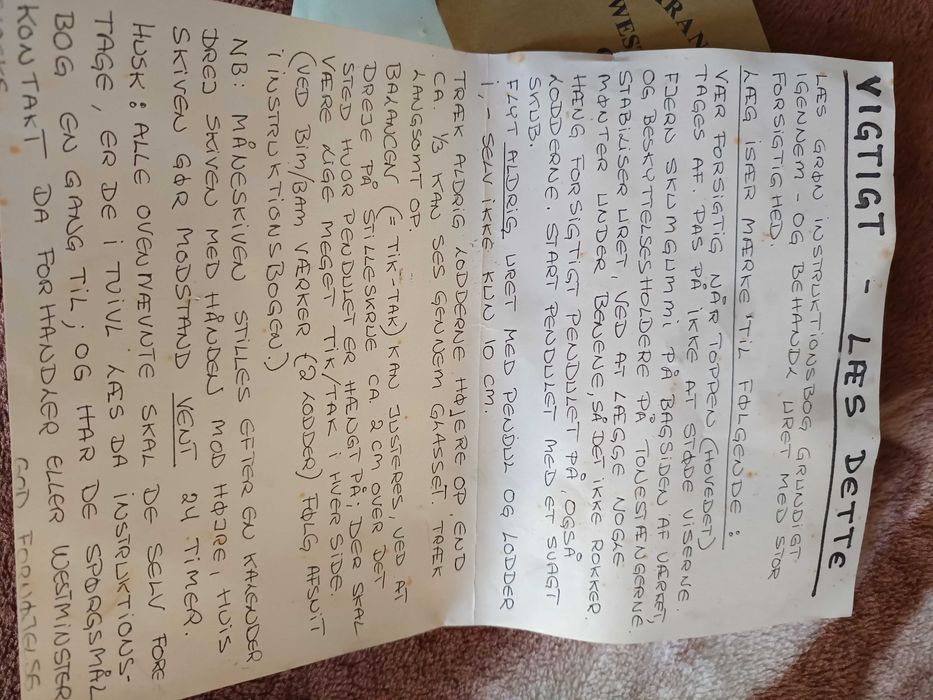 VIGTIGT - LÆS DETTE
LÆS GRØN INSTRUKTIONSBOG GRUNDIGT
IGENNEM - OG BEHANDL URET MED STOR
FORSIGTIGHED.
LÆG ISÆR MÆRKE TIL FØLGENDE:
VÆR FORSIGTIG NÅR TOPPEN (HOVEDET)
TAGES AF. PAS PÅ IKKE AT STØDE VISERNE.
FJERN SKUMGUMMI PÅ BAGSIDEN AF VÆRKET,
OG BESKYTTELSESHOLDERE PÅ TONESTÆNGERNE.
STABILISER URET, VED AT LÆGGE NOGLE
MØNTER UNDER BENENE, SÅ DET IKKE ROKKER.
HÆNG FORSIGTIGT PENDULET PÅ, OGSÅ
LODDERNE. START PENDULET MED ET SVAGT
SKUB.
FLYT ALDRIG URET MED PENDUL OG LODDER
I, - SELV IKKE KUN 10 CM.
TRÆK ALDRIG LODDERNE HØJERE OP, END
CA. 1/3 KAN SES GENNEM GLASSET. TRÆK
LANGSOMT OP.
BALANCEN (= TIK-TAK) KAN JUSTERES, VED AT
DREJE PÅ STILLESKRUE CA 2 CM OVER DET
STED HVOR PENDULET ER HÆNGT PÅ; DER SKAL
VÆRE LIGE MEGET TIK/TAK I HVER SIDE.
(VED BIM/BAM VÆRKER (2 LODDER) FØLG AFSNIT
I INSTRUKTIONSBOGEN.)
NB: MÅNESKIVEN STILLES EFTER EN KALENDER
DREJ SKIVEN MED HÅNDEN MOD HØJRE, HVIS
SKIVEN GØR MODSTAND VENT 24 TIMER.
HUSK: ALLE OVENNÆVNTE SKAL DE SELV FORE
TAGE, ER DE I TVIVL LÆS DA INSTRUKTIONS-
BOG EN GANG TIL; OG HAR DE SPØRGSMÅL
KONTAKT DA FORHANDLER ELLER WESTMINSTER
GOD FORNØJELSE
RAN
WES